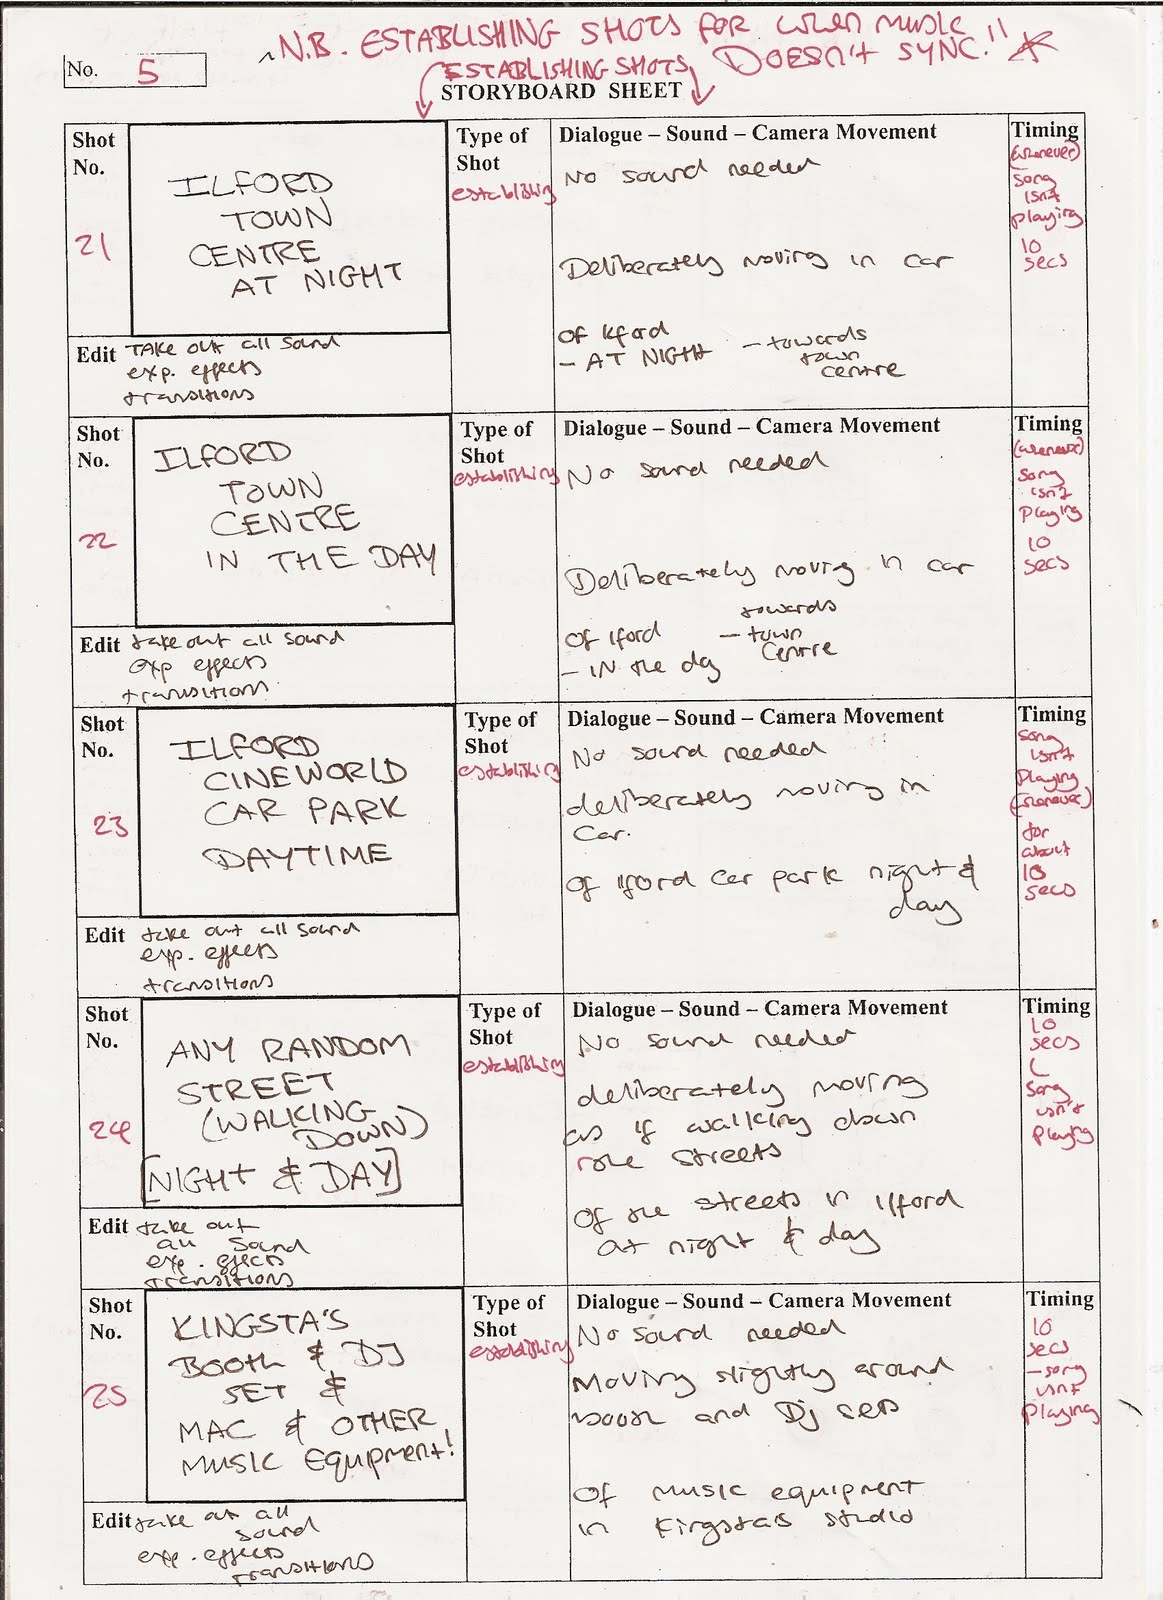 N.B. ESTABLISHING SHOTS FOR WHEN MUSIC
DOESN'T SYNC!!
No. 5
ESTABLISHING SHOTS
STORYBOARD SHEET
Shot
No.
21
ILFORD
TOWN
CENTRE
AT NIGHT
Type of
Shot
establishing
Dialogue – Sound – Camera Movement
No sound needed
Deliberately moving in car
of Ilford
- AT NIGHT - towards
town
centre
Timing
(whenever)
song
isn't
playing
10
secs
Edit TAKE out all sound
exp. effects
transitions
Shot
No.
22
ILFORD
TOWN
CENTRE
IN THE DAY
Type of
Shot
establishing
Dialogue – Sound – Camera Movement
No sound needed
Deliberately moving in car
towards
of Ilford - town
- IN the day centre
Timing
(whenever)
song
isn't
playing
10
secs
Edit take out all sound
exp effects
transitions
Shot
No.
23
ILFORD
CINEWORLD
CAR PARK
DAYTIME
Type of
Shot
establishing
Dialogue – Sound – Camera Movement
No sound needed
deliberately moving in
car.
of Ilford car park night &
day
Timing
song
isn't
playing
(whenever)
for
about
10
secs
Edit take out all sound
exp. effects
transitions
Shot
No.
24
ANY RANDOM
STREET
(WALKING
DOWN)
[NIGHT & DAY]
Type of
Shot
establishing
Dialogue – Sound – Camera Movement
No sound needed
deliberately moving
as if walking down
streets
of the streets in Ilford
at night & day
Timing
10
secs
(
song
isn't
playing
Edit take out
all sound
exp. effects
transitions
Shot
No.
25
KINGSTA'S
BOOTH & DJ
SET &
MAC & OTHER
MUSIC EQUIPMENT!
Type of
Shot
establishing
Dialogue – Sound – Camera Movement
No sound needed
Moving slightly around
booth and DJ sets
of music equipment
in Kingsta's studio
Timing
10
secs
- song
isn't
playing
Edit take out all
sound
exp. effects
transitions